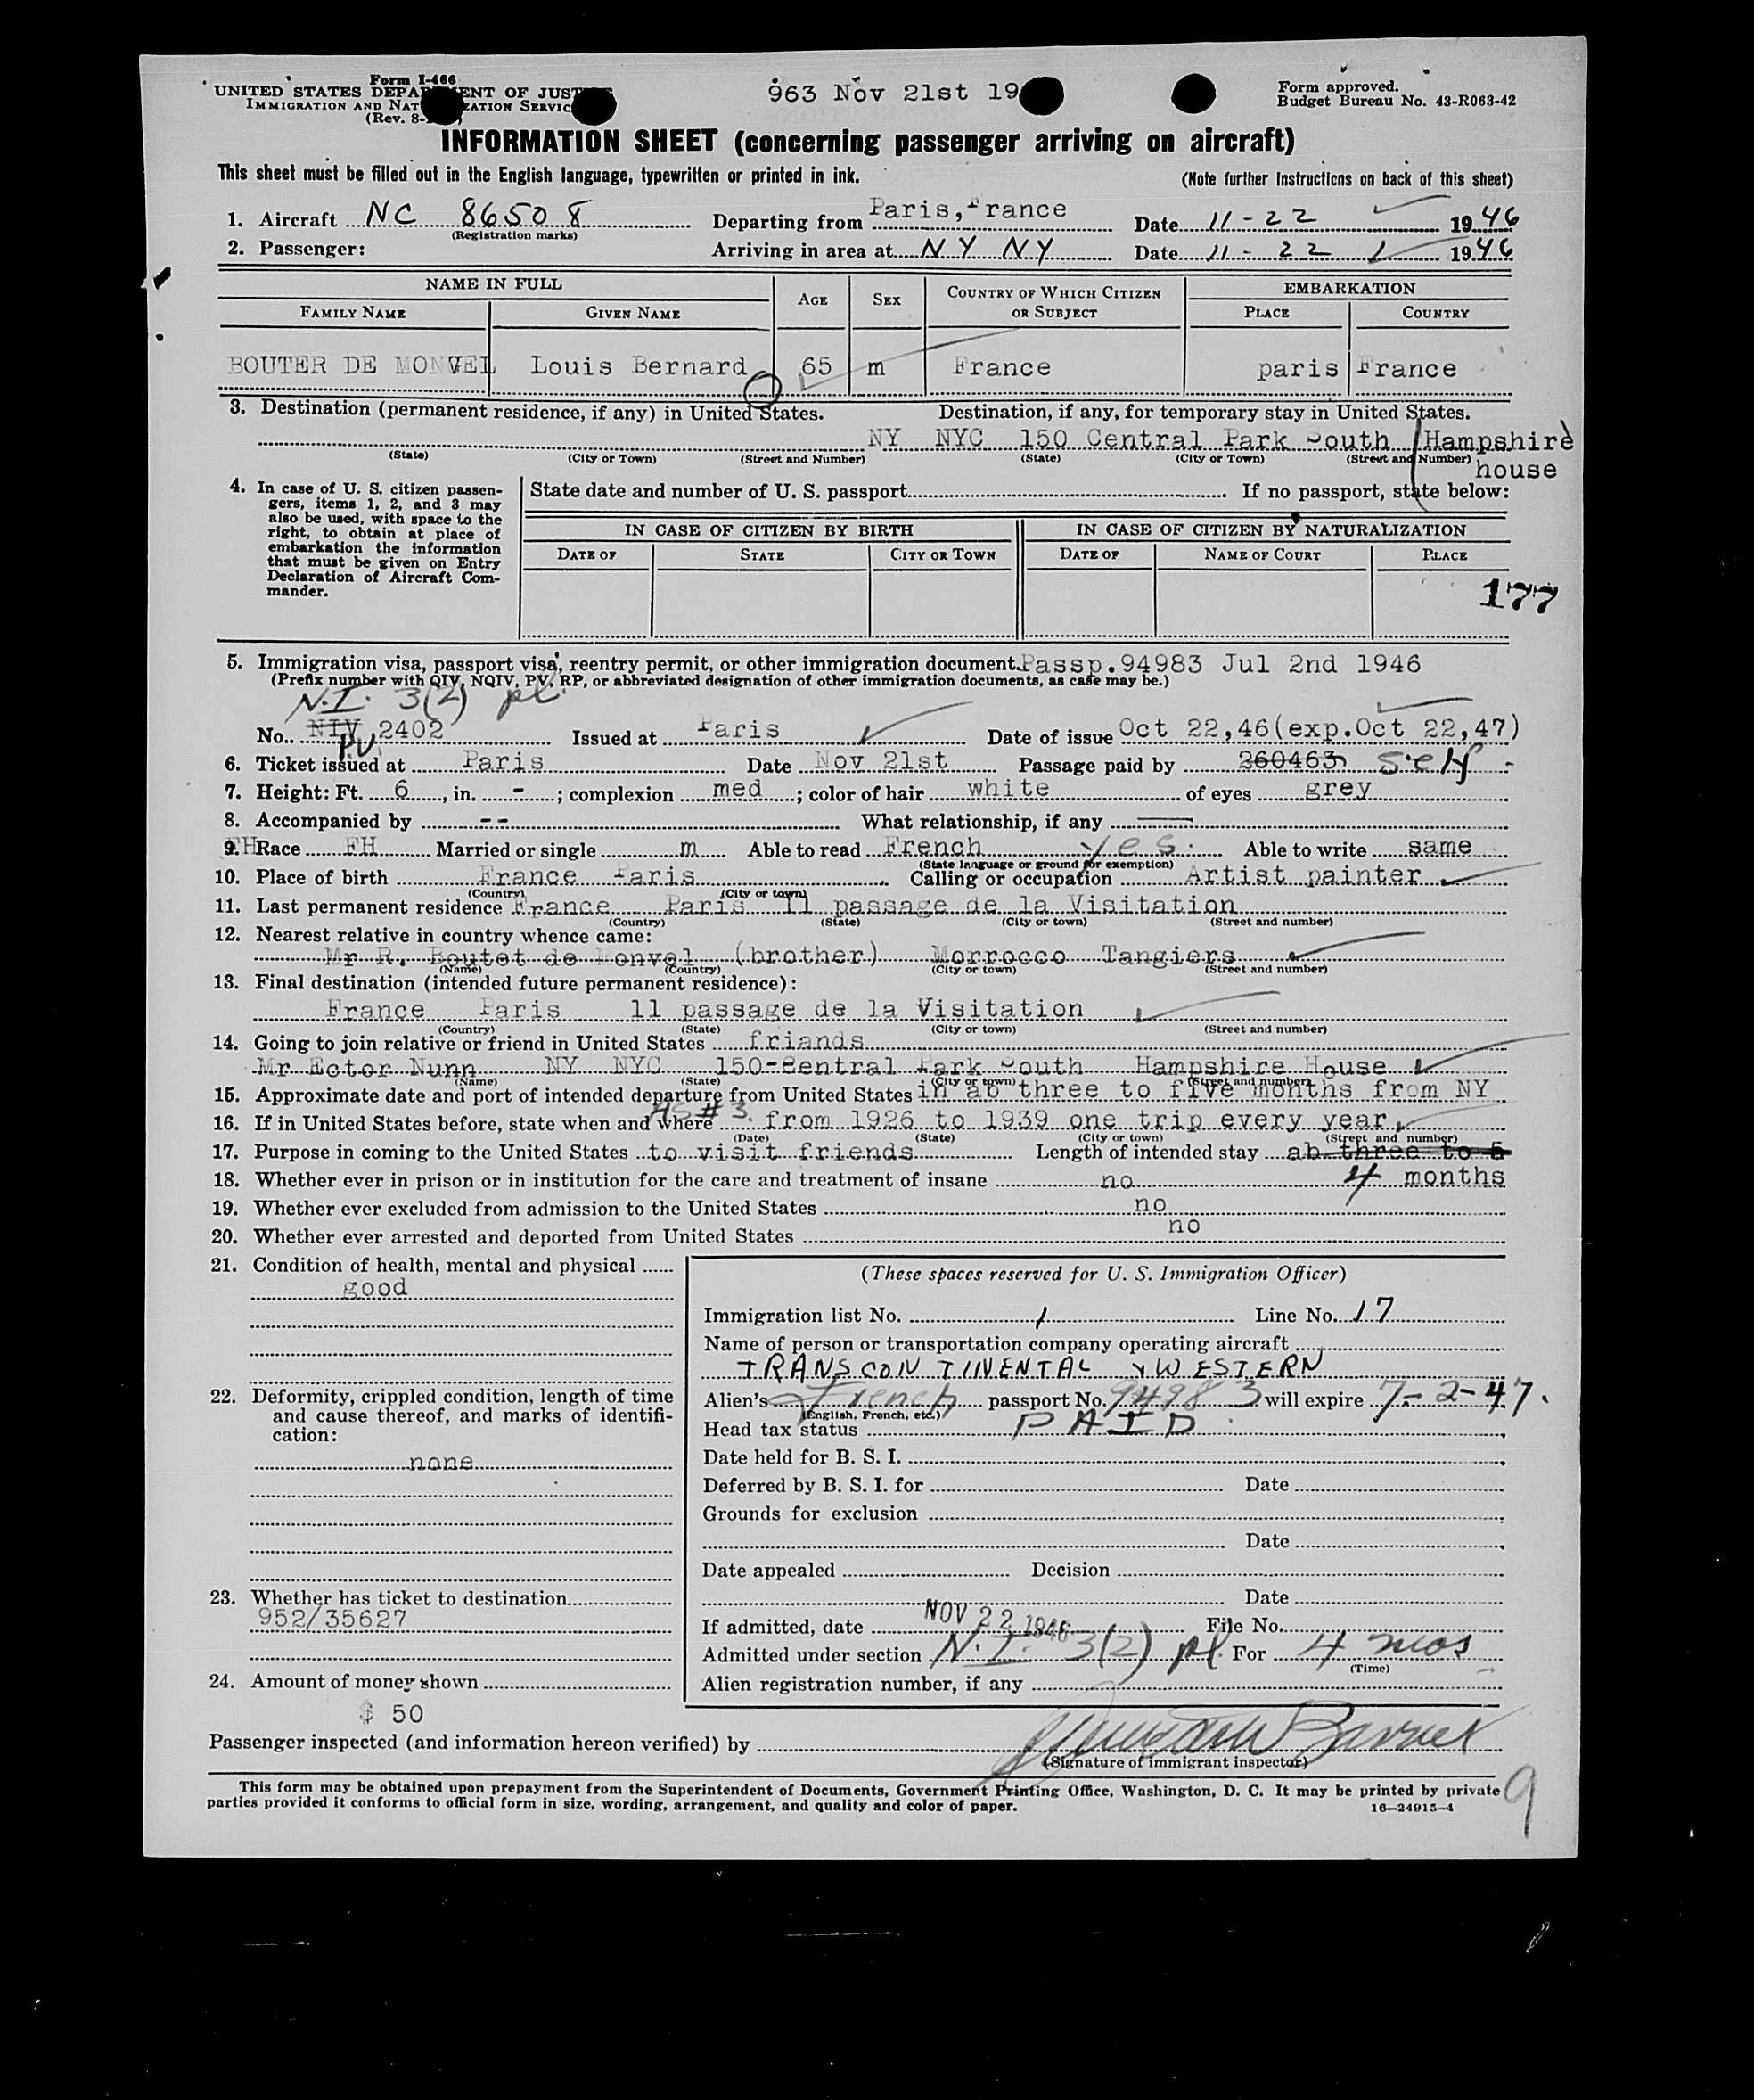 Form I-466
UNITED STATES DEPA ENT OF JUST
IMMIGRATION AND NAT ZATION SERVIC
(Rev. 8-
963 Nov 21st 19
Form approved.
Budget Bureau No. 43-R063-42
INFORMATION SHEET (concerning passenger arriving on aircraft)
This sheet must be filled out in the English language, typewritten or printed in ink. (Note further instructions on back of this sheet)
1. Aircraft NC 86508 Departing from Paris, France Date 11-22 1946
(Registration marks)
2. Passenger: Arriving in area at NY NY Date 11-22 1946
NAME IN FULL AGE SEX COUNTRY OF WHICH CITIZEN OR SUBJECT EMBARKATION
FAMILY NAME GIVEN NAME PLACE COUNTRY
BOUTER DE MONVEL Louis Bernard 65 m France paris France
3. Destination (permanent residence, if any) in United States. Destination, if any, for temporary stay in United States.
NY NYC 150 Central Park South (Hampshire
(State) (City or Town) (Street and Number) (State) (City or Town) (Street and Number)
house
4. In case of U. S. citizen passen-
gers, items 1, 2, and 3 may
also be used, with space to the
right, to obtain at place of
embarkation the information
that must be given on Entry
Declaration of Aircraft Com-
mander.
State date and number of U. S. passport If no passport, state below:
IN CASE OF CITIZEN BY BIRTH IN CASE OF CITIZEN BY NATURALIZATION
DATE OF STATE CITY OR TOWN DATE OF NAME OF COURT PLACE
177
5. Immigration visa, passport visa, reentry permit, or other immigration document. Passp.94983 Jul 2nd 1946
(Prefix number with QIV, NQIV, PV, RP, or abbreviated designation of other immigration documents, as case may be.)
N.I. 3(2) pl.
No. NIV 2402 Issued at Paris Date of issue Oct 22,46(exp.Oct 22,47)
PV
6. Ticket issued at Paris Date Nov 21st Passage paid by 260463 Self
7. Height: Ft. 6, in. - ; complexion med ; color of hair white of eyes grey
8. Accompanied by -- What relationship, if any
9. Race FH Married or single m Able to read French yes. Able to write same
(State language or ground for exemption)
10. Place of birth France Paris Calling or occupation Artist painter
(Country) (City or town)
11. Last permanent residence France Paris 11 passage de la Visitation
(Country) (State) (City or town) (Street and number)
12. Nearest relative in country whence came:
Mr R. Boutet de Monvel (brother) Morrocco Tangiers
(Name) (Country) (City or town) (Street and number)
13. Final destination (intended future permanent residence):
France Paris 11 passage de la Visitation
(Country) (State) (City or town) (Street and number)
14. Going to join relative or friend in United States friands
Mr Ector Nunn NY NYC 150-Sentral Park South Hampshire House
(Name) (State) (City or town) (Street and number)
15. Approximate date and port of intended departure from United States in ab three to five months from NY
16. If in United States before, state when and where HS#3. from 1926 to 1939 one trip every year.
(Date) (State) (City or town) (Street and number)
17. Purpose in coming to the United States to visit friends Length of intended stay ab three to 5
18. Whether ever in prison or in institution for the care and treatment of insane no 4 months
19. Whether ever excluded from admission to the United States no
20. Whether ever arrested and deported from United States no
21. Condition of health, mental and physical
good
22. Deformity, crippled condition, length of time
and cause thereof, and marks of identifi-
cation:
none
23. Whether has ticket to destination
952/35627
24. Amount of money shown
$ 50
(These spaces reserved for U. S. Immigration Officer)
Immigration list No. 1 Line No. 17
Name of person or transportation company operating aircraft
TRANSCONTINENTAL & WESTERN
Alien's French passport No. 94983 will expire 7-2-47.
(English, French, etc.)
Head tax status PAID
Date held for B. S. I.
Deferred by B. S. I. for Date
Grounds for exclusion
Date
Date appealed Decision
Date
If admitted, date NOV 22 1946 File No.
Admitted under section N.I. 3(2) pl. For 4 mos
(Time)
Alien registration number, if any
Passenger inspected (and information hereon verified) by
(Signature of immigrant inspector)
This form may be obtained upon prepayment from the Superintendent of Documents, Government Printing Office, Washington, D. C. It may be printed by private
parties provided it conforms to official form in size, wording, arrangement, and quality and color of paper. 16—24915-4
9